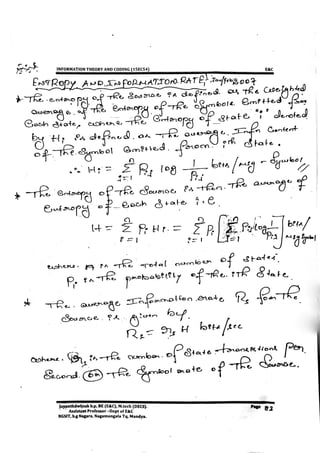 INFORMATION THEORY AND CODING (15EC54) E&C
ENTROPY AND INFORMATION RATE
* The entropy of the Source is defined as the weighted
average of the Entropy of the Symbols Emitted from
Each state, where the Entropy of state 'i' denoted
by Hi is defined as the average Infn Content
of The Symbol Emitted from ith state.
∴ Hi = Σ Pij log 1/Pij bits/msg-symbol
* The Entropy of the Source is then the average of
Entropy of Each state i.e,
H = Σ Pi Hi = Σ Pi [Σ Pij log 1/Pij] bits/msg symbol
where, n is The total number of states.
Pi is The probability of the ith State.
* The average Information rate Rs for The
Source is given by
Rs = rs H bits/sec
where, rs is The number of State transitions per
Second. (or) The Symbol rate of The Source.
Jayanthdwijesh h.p, BE (E&C), M.tech (DECS).
Assistant Professor –Dept of E&C
BGSIT, b.g Nagara, Nagamangala Tq, Mandya.
Page 82